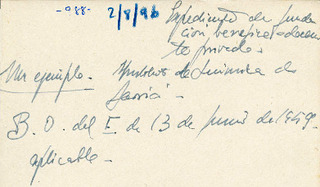 -088- 2/8/96 Expediente de funda
cion benefico-docen
te privada.
Un ejemplo. Instituto de Quimica de
Sarriá.-
B. O. del E de 13 de Junio de 1949.
aplicable.-